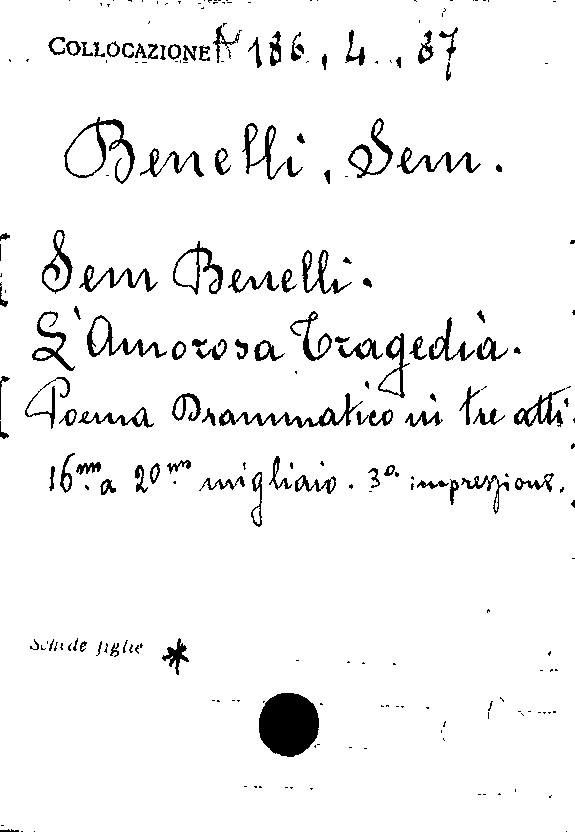 COLLOCAZIONE A 186.4.,87
Benelli, Sem.
Sem Benelli.
L'Amorosa Tragedia.
Poema Drammatico in tre atti.
16mo a 20mo migliaio. 3a impressione.
Schede figlie *